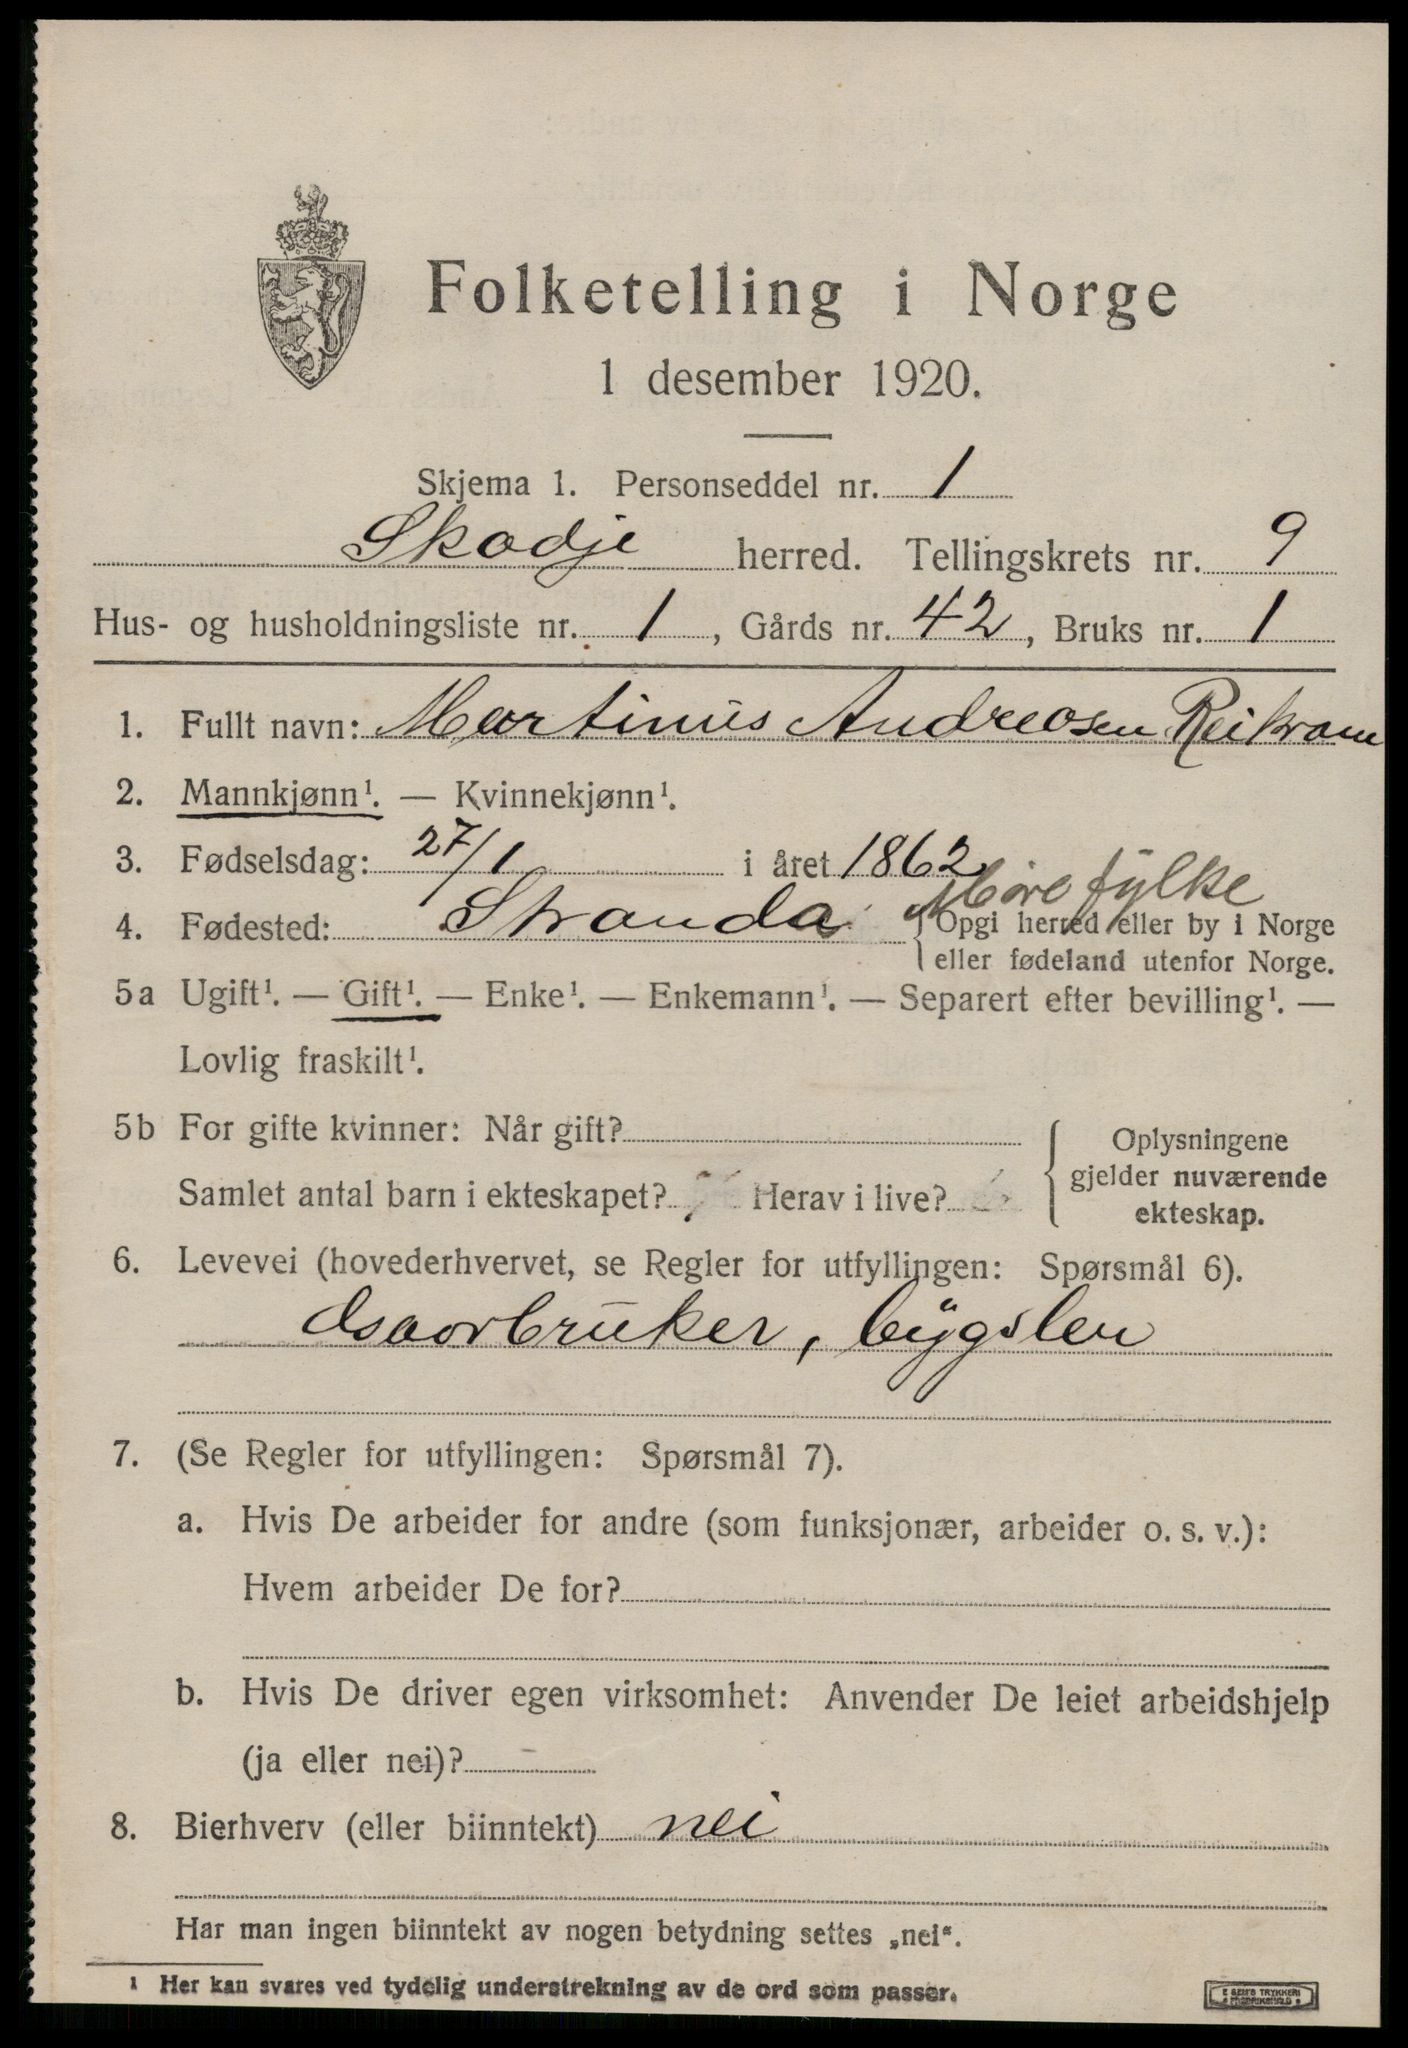 Folketelling i Norge
1 desember 1920.
Skjema 1. Personseddel nr. 1
Skodje herred. Tellingskrets nr. 9
Hus- og husholdningsliste nr. 1, Gårds nr. 42, Bruks nr. 1
1. Fullt navn: Martinus Andreasen
2. Mannkjønn¹. — Kvinnekjønn¹.
3. Fødselsdag: 27/1 i året 1862
Møre fylke
4. Fødested: Stranda {Opgi herred eller by i Norge
eller fødeland utenfor Norge.
5a Ugift¹. — Gift¹. — Enke¹. — Enkemann¹. — Separert efter bevilling¹. —
Lovlig fraskilt¹.
5b For gifte kvinner: Når gift?
Samlet antal barn i ekteskapet? Herav i live?
Oplysningene
gjelder nuværende
ekteskap.
6. Levevei (hovederhvervet, se Regler for utfyllingen: Spørsmål 6).
Gaarbruker, bygslen
7. (Se Regler for utfyllingen: Spørsmål 7).
a. Hvis De arbeider for andre (som funksjonær, arbeider o. s. v.):
Hvem arbeider De for?
b. Hvis De driver egen virksomhet: Anvender De leiet arbeidshjelp
(ja eller nei)?
8. Bierhverv (eller biinntekt) nei
Har man ingen biinntekt av nogen betydning settes „nei“.
¹ Her kan svares ved tydelig understrekning av de ord som passer.
E SEM'S TRYKKERI
FREDRIKSHALD